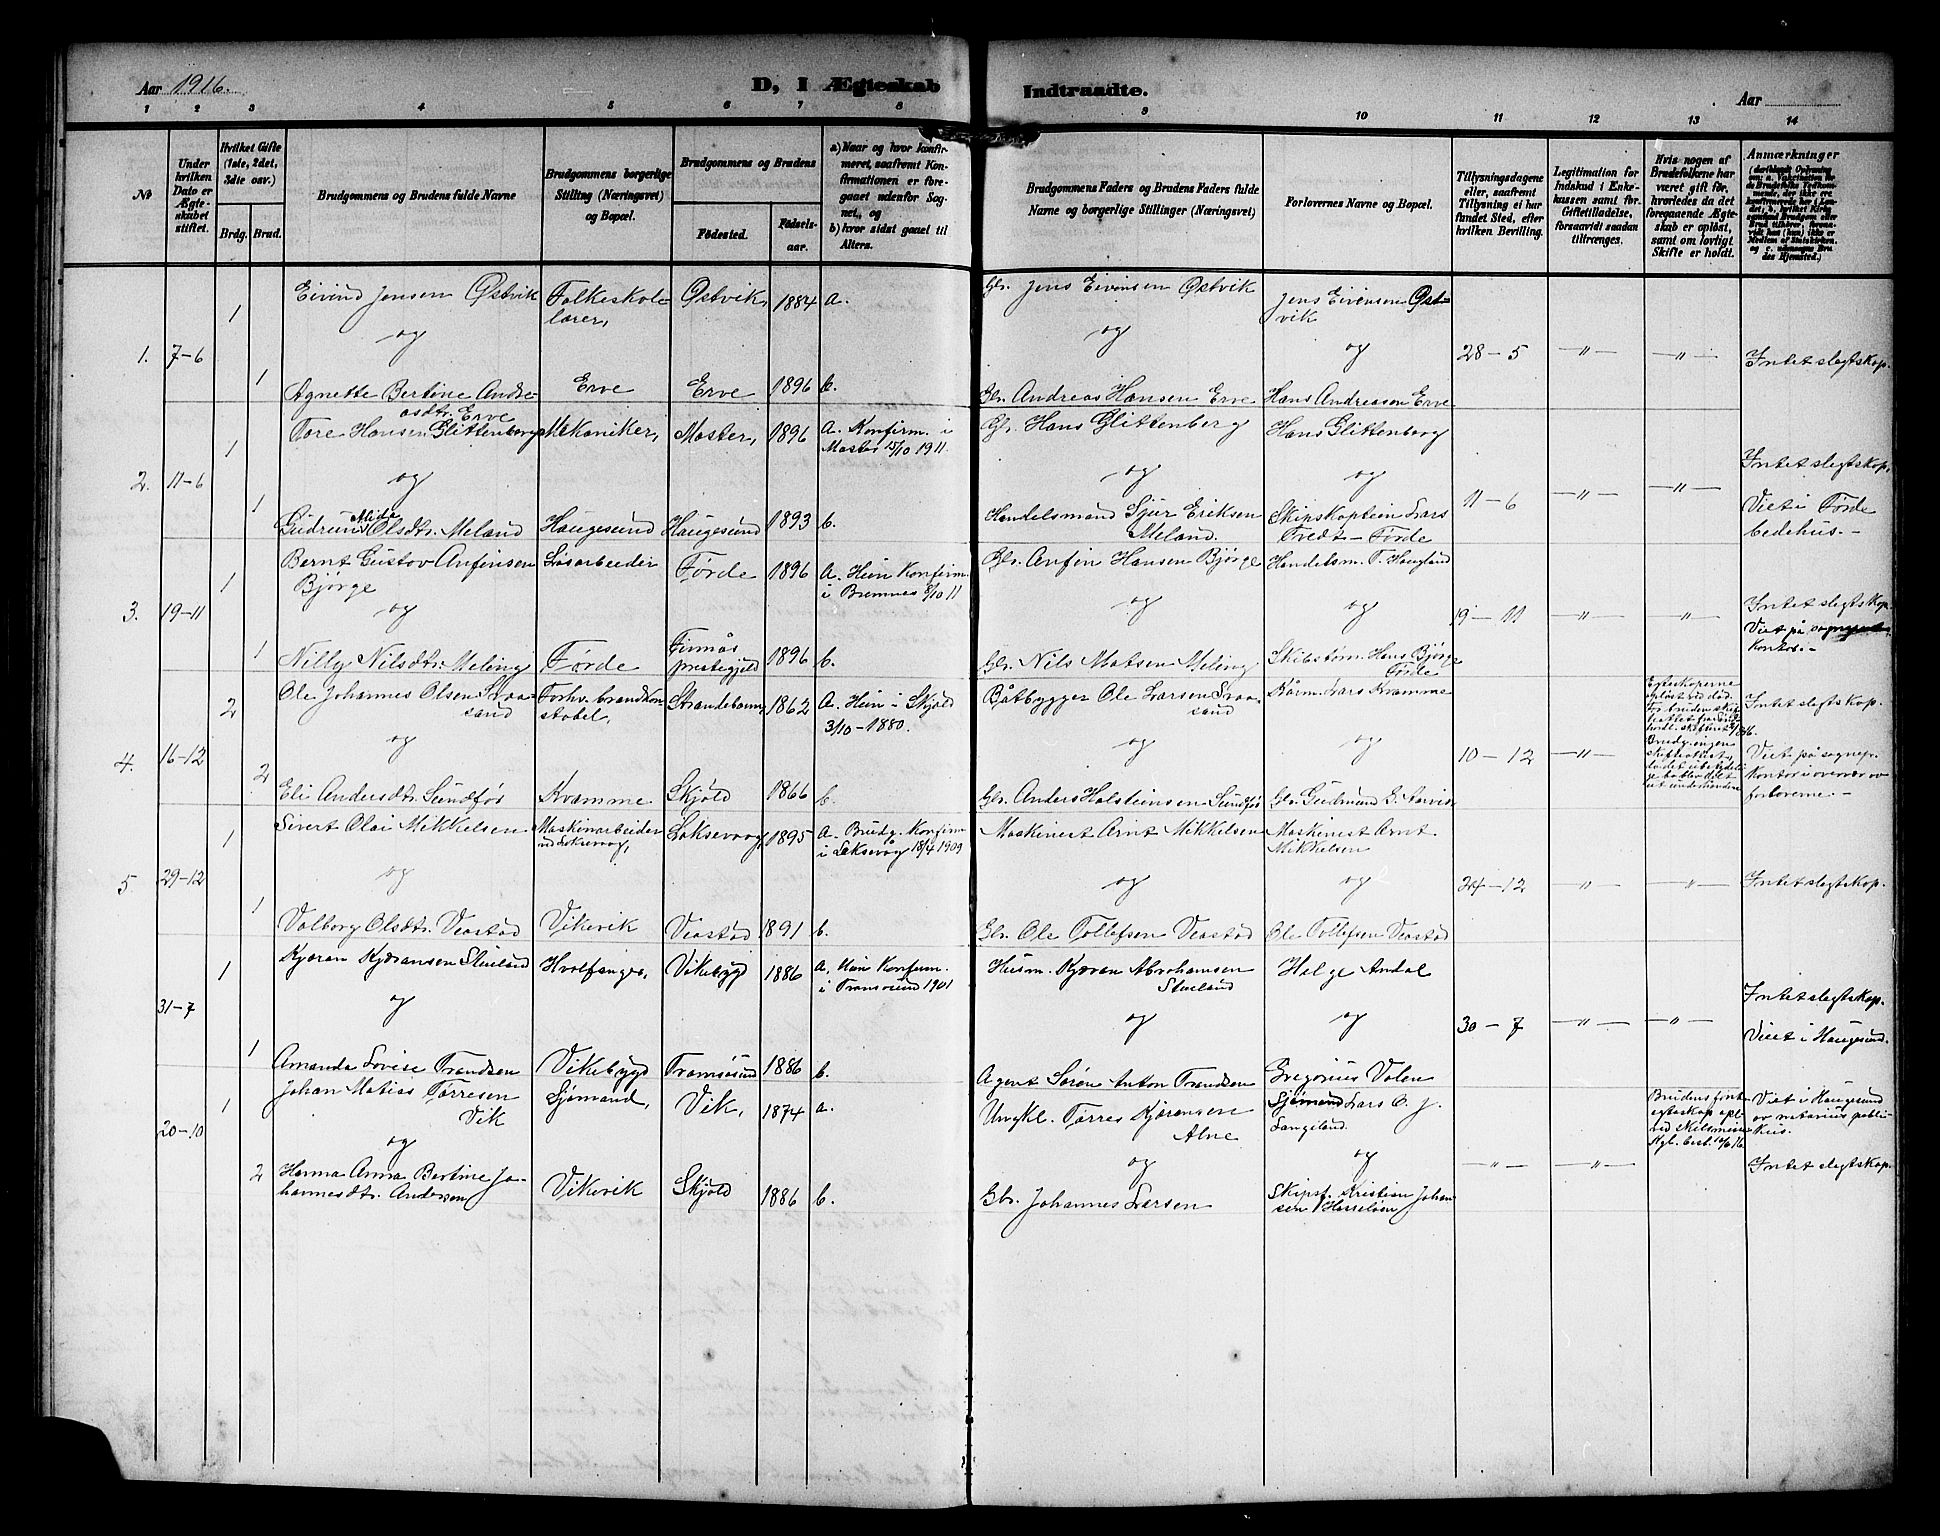 Aar 1916.
D, I Ægteskab
Indtraadte.
Aar
1 2 3 4 5 6 7 8
9 10 11 12 13 14
No
Under hvilken Dato er Ægteskabet stiftet.
Hvilket Gifte (1ste, 2det, 3die osv.)
Brdg. Brud.
Brudgommens og Brudens fulde Navne
Brudgommens borgerlige Stilling (Næringsvei) og Bopæl.
Brudgommens og Brudens
Fødested.
Fødselsaar.
a) Naar og hvor konfirmeret, saafremt Konfirmationen er foregaaet udenfor Sognet, og
b) hvor sidst gaaet til Alters.
Brudgommens Faders og Brudens Faders fulde Navne og borgerlige Stillinger (Næringsvei)
Forlovernes Navne og Bopæl.
Tillysningsdagene eller, saafremt Tillysning ei har fundet Sted, efter hvilken Bevilling.
Legitimation for Indskud i Enkekassen samt for Giftetilladelse, forsaavidt saadan tiltrænges.
Hvis nogen af Brudefolkene har været gift før, hvorledes da det foregaaende Ægteskab er opløst, samt om lovligt Skifte er holdt.
Anmærkninger
1. 7-6
1 Eivind Jensen Østvik Folkeskolelærer, Østvik, 1884 a. Gbr. Jens Eivensen Østvik Jens Eivensen Østvik
og og og 28-5 -"- -"- Intet slegtskap.
1 Agnette Bertine Andreasdtr. Erve Erve Erve 1896 b. Gbr. Andreas Hansen Erve Hans Andreasen Erve
2. 11-6
1 Tore Hansen Glittenberg Mekaniker, Moster, 1896 a. Konfirm. i Moster 15/10 1911. Gbr. Hans Glittenberg Hans Glittenberg
og og og 11-6 -"- -"- Intet slegtskap. Viet i Förde bedehus.-
1 Gudrun Olsdtr. Meland Haugesund Haugesund 1893 b. Handelsmand Sjur Eriksen Meland. Skipskaptein Lars Tredt - Förde
3. 19-11
1 Bernt Gustav Anfinsen Bjørge Løsarbeider Førde 1896 a. Hein Konfirm. i Bremnes 8/10 11 Gbr. Anfin Hansen Bjørge Handelsm. T. Haugland
og og og 19-11 -"- -"- Intet slegtskap. Viet på kontor.-
1 Nilly Nilsdtr. Meling Førde Finnås prestegjeld 1896 b. Gbr. Nils Matsen Meling Skibstøm. Hans Bjørge Førde
4. 16-12
2 Ole Johannes Olsen Svaasand Forhv. brandkonstabel, Strandebarm, 1862 a. Hein i Skjold 3/10-1880. Båtbygger Ole Larsen Svaasand Kårm. Lars Kvamme
og og og 10-12 -"- Intet slegtskap. Viet på sognepr. kontor i overvær av forloverne.-
2 Eli Andersdtr. Sundför Kvamme Skjold 1866 b. Gbr. Anders Holsteinsen Sundför Gbr. Gudmund G.
5 29-12
1 Sivert Olai Mikkelsen Maskinarbeider ved Laksevaag, Laksevaag, 1895 a. Brudg. Konfirm i Laksevåg 18/4 1909 Maskinist Arnt Mikkelsen Maskinist Arnt. Mikkelsen
og og og 24-12 -"- -"- Intet slegtskap.
1 Valborg Olsdtr. Veastad Vikevik Veastad 1891 b. Gbr. Ole Tollefsen Veastad Ole Tollefsen Veastad
31-7
1 Kjæran Kjæransen Stueland Hvalfanger, Vikebygd 1886 a. Hein Konfirm. i Tromsøsund 1901 Husm. Kjæran Abrahamsen Stueland Helge Andal
og og og 30-7 -"- -"- Intet slegtskap. Viet i Haugesund.
1 Amanda Lovise Trandsen Vikebygd Tromsøsund 1886 b. Agent Søren Anton Trandsen Gregorius Valen
20-10
1 Johan Matias Tørresen Vik Sjømand, Vik, 1874 a. Ungkl. Tørres Kjæransen Alne Sjømand Lars O. J. Langeland. Viet i Haugesund av notarius publikus.
og og og -"- -"- Intet slegtskap.
2 Hanna Anna Bertine Johannesdtr. Andersen Vikevik Skjold 1886 b. Gbr. Johannes Larsen Skipsf. Kristian Johansen Hasseløen